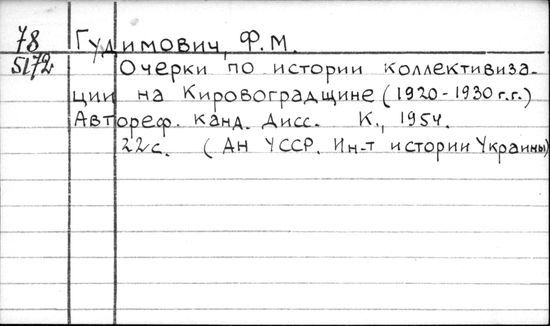 78 Гудимович, Ф.М.
5172 Очерки по истории коллективиза-
ции на Кировоградщине (1920-1930 г.г.)
Автореф. канд. дисс. К., 1954.
22с. (АН УССР. Ин-т истории Украины)